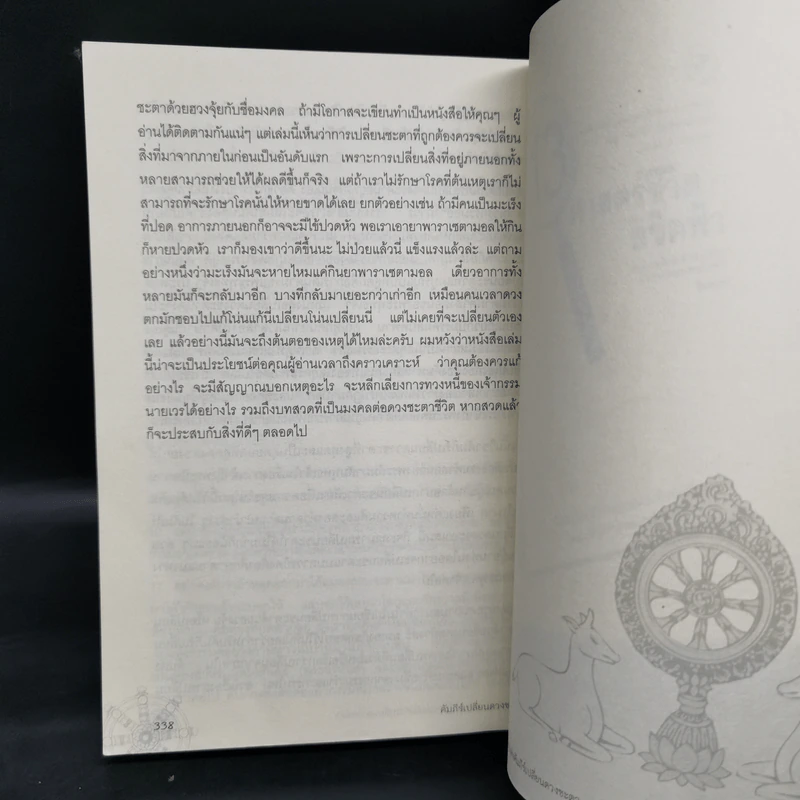 ชะตาด้วยฮวงจุ้ยกับชื่อมงคล ถ้ามีโอกาสจะเขียนทำเป็นหนังสือให้คุณๆ ผู้
อ่านได้ติดตามกันแน่ๆ แต่เล่มนี้เห็นว่าการเปลี่ยนชะตาที่ถูกต้องควรจะเปลี่ยน
สิ่งที่มาจากภายในก่อนเป็นอันดับแรก เพราะการเปลี่ยนสิ่งที่อยู่ภายนอกทั้ง
หลายสามารถช่วยให้ได้ผลดีขึ้นก็จริง แต่ถ้าเราไม่รักษาโรคที่ต้นเหตุเราก็ไม่
สามารถที่จะรักษาโรคนั้นให้หายขาดได้เลย ยกตัวอย่างเช่น ถ้ามีคนเป็นมะเร็ง
ที่ปอด อาการภายนอกก็อาจจะมีไข้ปวดหัว พอเราเอายาพาราเซตามอลให้กิน
ก็หายปวดหัว เราก็มองเขาว่าดีขึ้นนะ ไม่ป่วยแล้วนี่ แข็งแรงแล้วล่ะ แต่ถาม
อย่างหนึ่งว่ามะเร็งมันจะหายไหมแค่กินยาพาราเซตามอล เดี๋ยวอาการทั้ง
หลายมันก็จะกลับมาอีก บางทีกลับมาเยอะกว่าเก่าอีก เหมือนคนเวลาดวง
ตกมักชอบไปแก้โน่นแก้นี่เปลี่ยนโน่นเปลี่ยนนี่ แต่ไม่เคยที่จะเปลี่ยนตัวเอง
เลย แล้วอย่างนี้มันจะถึงต้นตอของเหตุได้ไหมล่ะครับ ผมหวังว่าหนังสือเล่ม
นี้น่าจะเป็นประโยชน์ต่อคุณผู้อ่านเวลาถึงคราวเคราะห์ ว่าคุณต้องควรแก้
อย่างไร จะมีสัญญาณบอกเหตุอะไร จะหลีกเลี่ยงการทวงหนี้ของเจ้ากรรม
นายเวรได้อย่างไร รวมถึงบทสวดที่เป็นมงคลต่อดวงชะตาชีวิต หากสวดแล้ว
ก็จะประสบกับสิ่งที่ดีๆ ตลอดไป
338
คัมภีร์เปลี่ยนดวงช